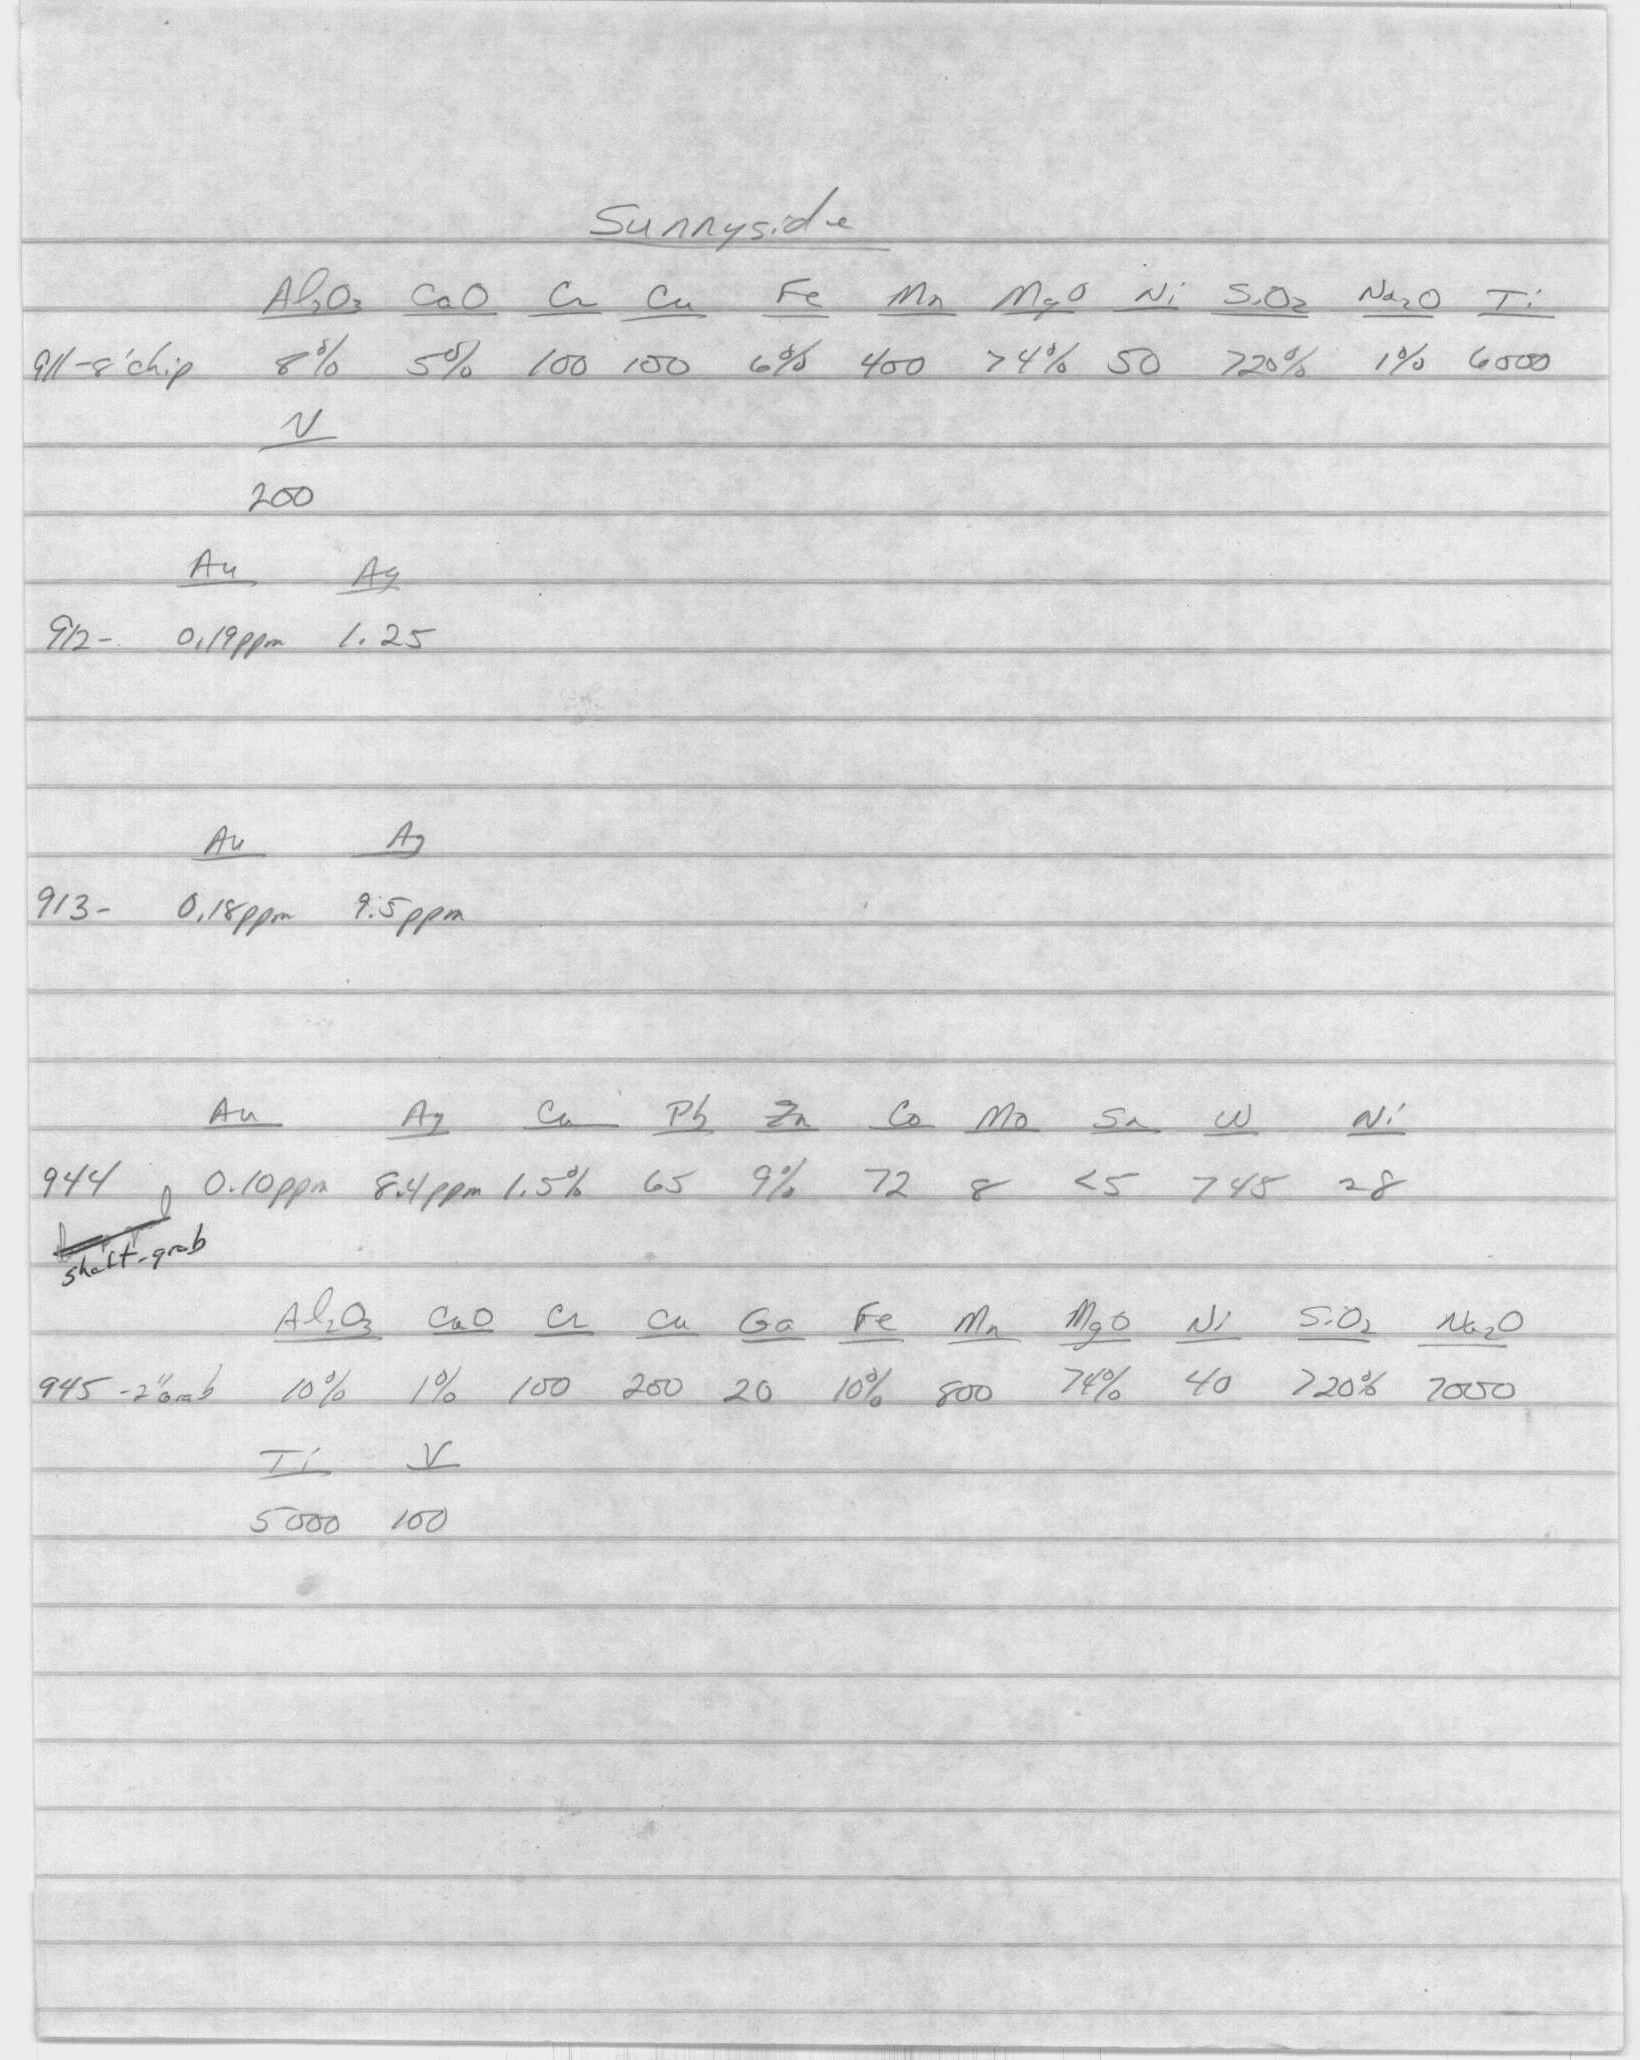 Sunnyside
Al₂O₃ CaO Cr Cu Fe Mn MgO Ni SiO₂ Na₂O Ti
911-8' chip 8% 5% 100 100 6% 400 >4% 50 >20% 1% 6000
V
200
Au Ag
912- 0.19ppm 1.25
Au Ag
913- 0.18ppm 9.5ppm
Au Ag Cu Pb Zn Co Mo Sn W Ni
944 0.10ppm 8.4ppm 1.5% 65 9% 72 8 <5 745 28
shaft-grab
Al₂O₃ CaO Cr Cu Ga Fe Mn MgO Ni SiO₂ Na₂O
945 - Grab 10% 1% 100 200 20 10% 800 >4% 40 >20% 7000
Ti V
5000 100